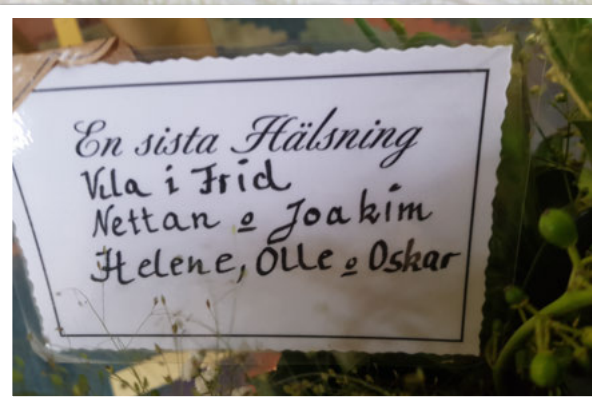 En sista Hälsning
Vila i Frid
Nettan o Joakim
Helene, Olle o Oskar